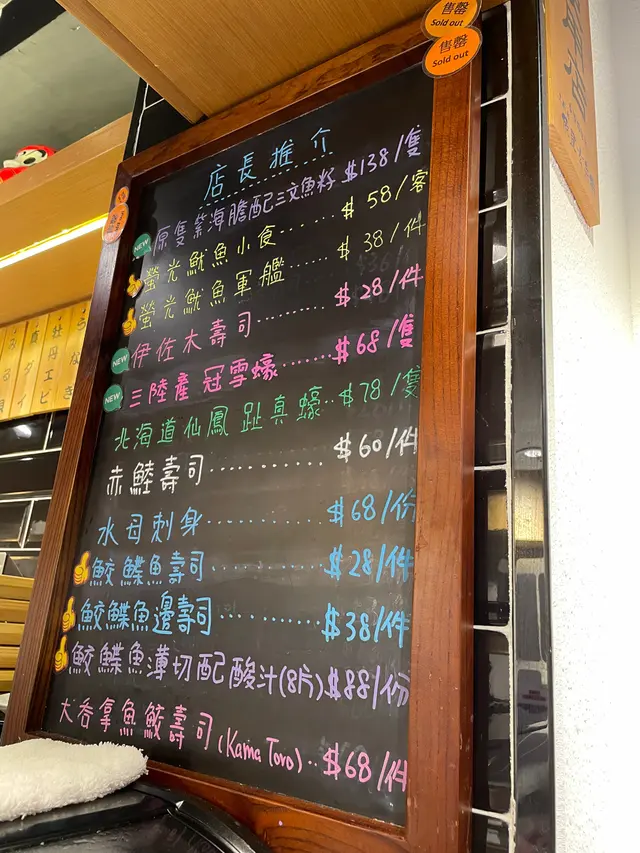 售罄
Sold out
售罄
Sold out
店長推介
原隻紫海膽配三文魚籽 $138/隻
NEW 螢光魷魚小食....... $ 58/客
螢光魷魚軍艦 $ 38/件
伊佐木壽司........ $ 28/件
NEW 三陸產 冠雪蠔....... $68/隻
NEW 北海道仙鳳 趾真蠔.. $78/隻
赤鯥壽司............ $60/件
水母刺身............ $68/份
鮫鰈魚壽司............ $28/件
鮫鰈魚邊壽司............ $38/件
鮫鰈魚薄切配酸汁(8片) $88/份
大吞拿魚鮫壽司(Kama Toro).. $68/件